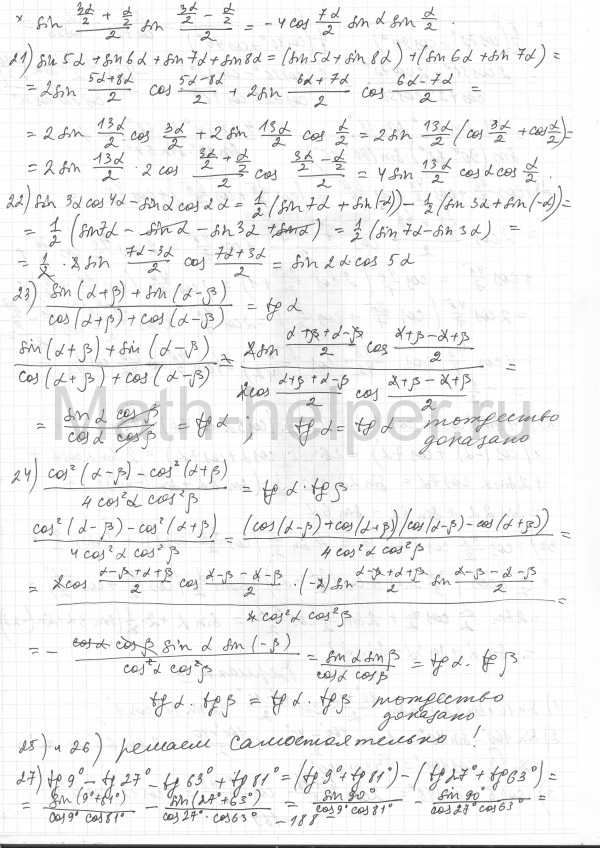 × sin (3α/2 + α/2)/2 sin (3α/2 − α/2)/2 = −4 cos 7α/2 sin α sin α/2 .
21) sin 5α + sin 6α + sin 7α + sin 8α = (sin 5α + sin 8α) + (sin 6α + sin 7α) =
= 2 sin (5α+8α)/2 cos (5α−8α)/2 + 2 sin (6α+7α)/2 cos (6α−7α)/2 =
= 2 sin 13α/2 cos 3α/2 + 2 sin 13α/2 cos α/2 = 2 sin 13α/2 (cos 3α/2 + cos α/2) =
= 2 sin 13α/2 · 2 cos (3α/2 + α/2)/2 cos (3α/2 − α/2)/2 = 4 sin 13α/2 cos α cos α/2 .
22) sin 3α cos 4α − sin α cos 2α = 1/2 (sin 7α + sin(−α)) − 1/2 (sin 3α + sin(−α)) =
= 1/2 (sin 7α − sin α − sin 3α + sin α) = 1/2 (sin 7α − sin 3α) =
= 1/2 · 2 sin (7α−3α)/2 cos (7α+3α)/2 = sin 2α cos 5α
23) (sin(α+β) + sin(α−β))/(cos(α+β) + cos(α−β)) = tg α
(sin(α+β) + sin(α−β))/(cos(α+β) + cos(α−β)) = (2 sin (α+β+α−β)/2 cos (α+β−α+β)/2)/(2 cos (α+β+α−β)/2 cos (α+β−α+β)/2) =
= (sin α cos β)/(cos α cos β) = tg α ; tg α = tg α тождество
доказано
Math-helper.ru
24) (cos²(α−β) − cos²(α+β))/(4 cos²α cos²β) = tg α · tg β
(cos²(α−β) − cos²(α+β))/(4 cos²α cos²β) = ((cos(α−β) + cos(α+β))(cos(α−β) − cos(α+β)))/(4 cos²α cos²β) =
= (2 cos (α−β+α+β)/2 cos (α−β−α−β)/2 · (−2) sin (α−β+α+β)/2 sin (α−β−α−β)/2)/(4 cos²α cos²β) =
= − (cos α cos β sin α sin(−β))/(cos²α cos²β) = (sin α sin β)/(cos α cos β) = tg α · tg β
tg α · tg β = tg α · tg β тождество
доказано
25) и 26) решаем самостоятельно!
27) tg 9° − tg 27° − tg 63° + tg 81° = (tg 9° + tg 81°) − (tg 27° + tg 63°) =
= sin(9°+81°)/(cos 9° cos 81°) − sin(27°+63°)/(cos 27° · cos 63°) = sin 90°/(cos 9° cos 81°) − sin 90°/(cos 27° cos 63°) =
− 188 −